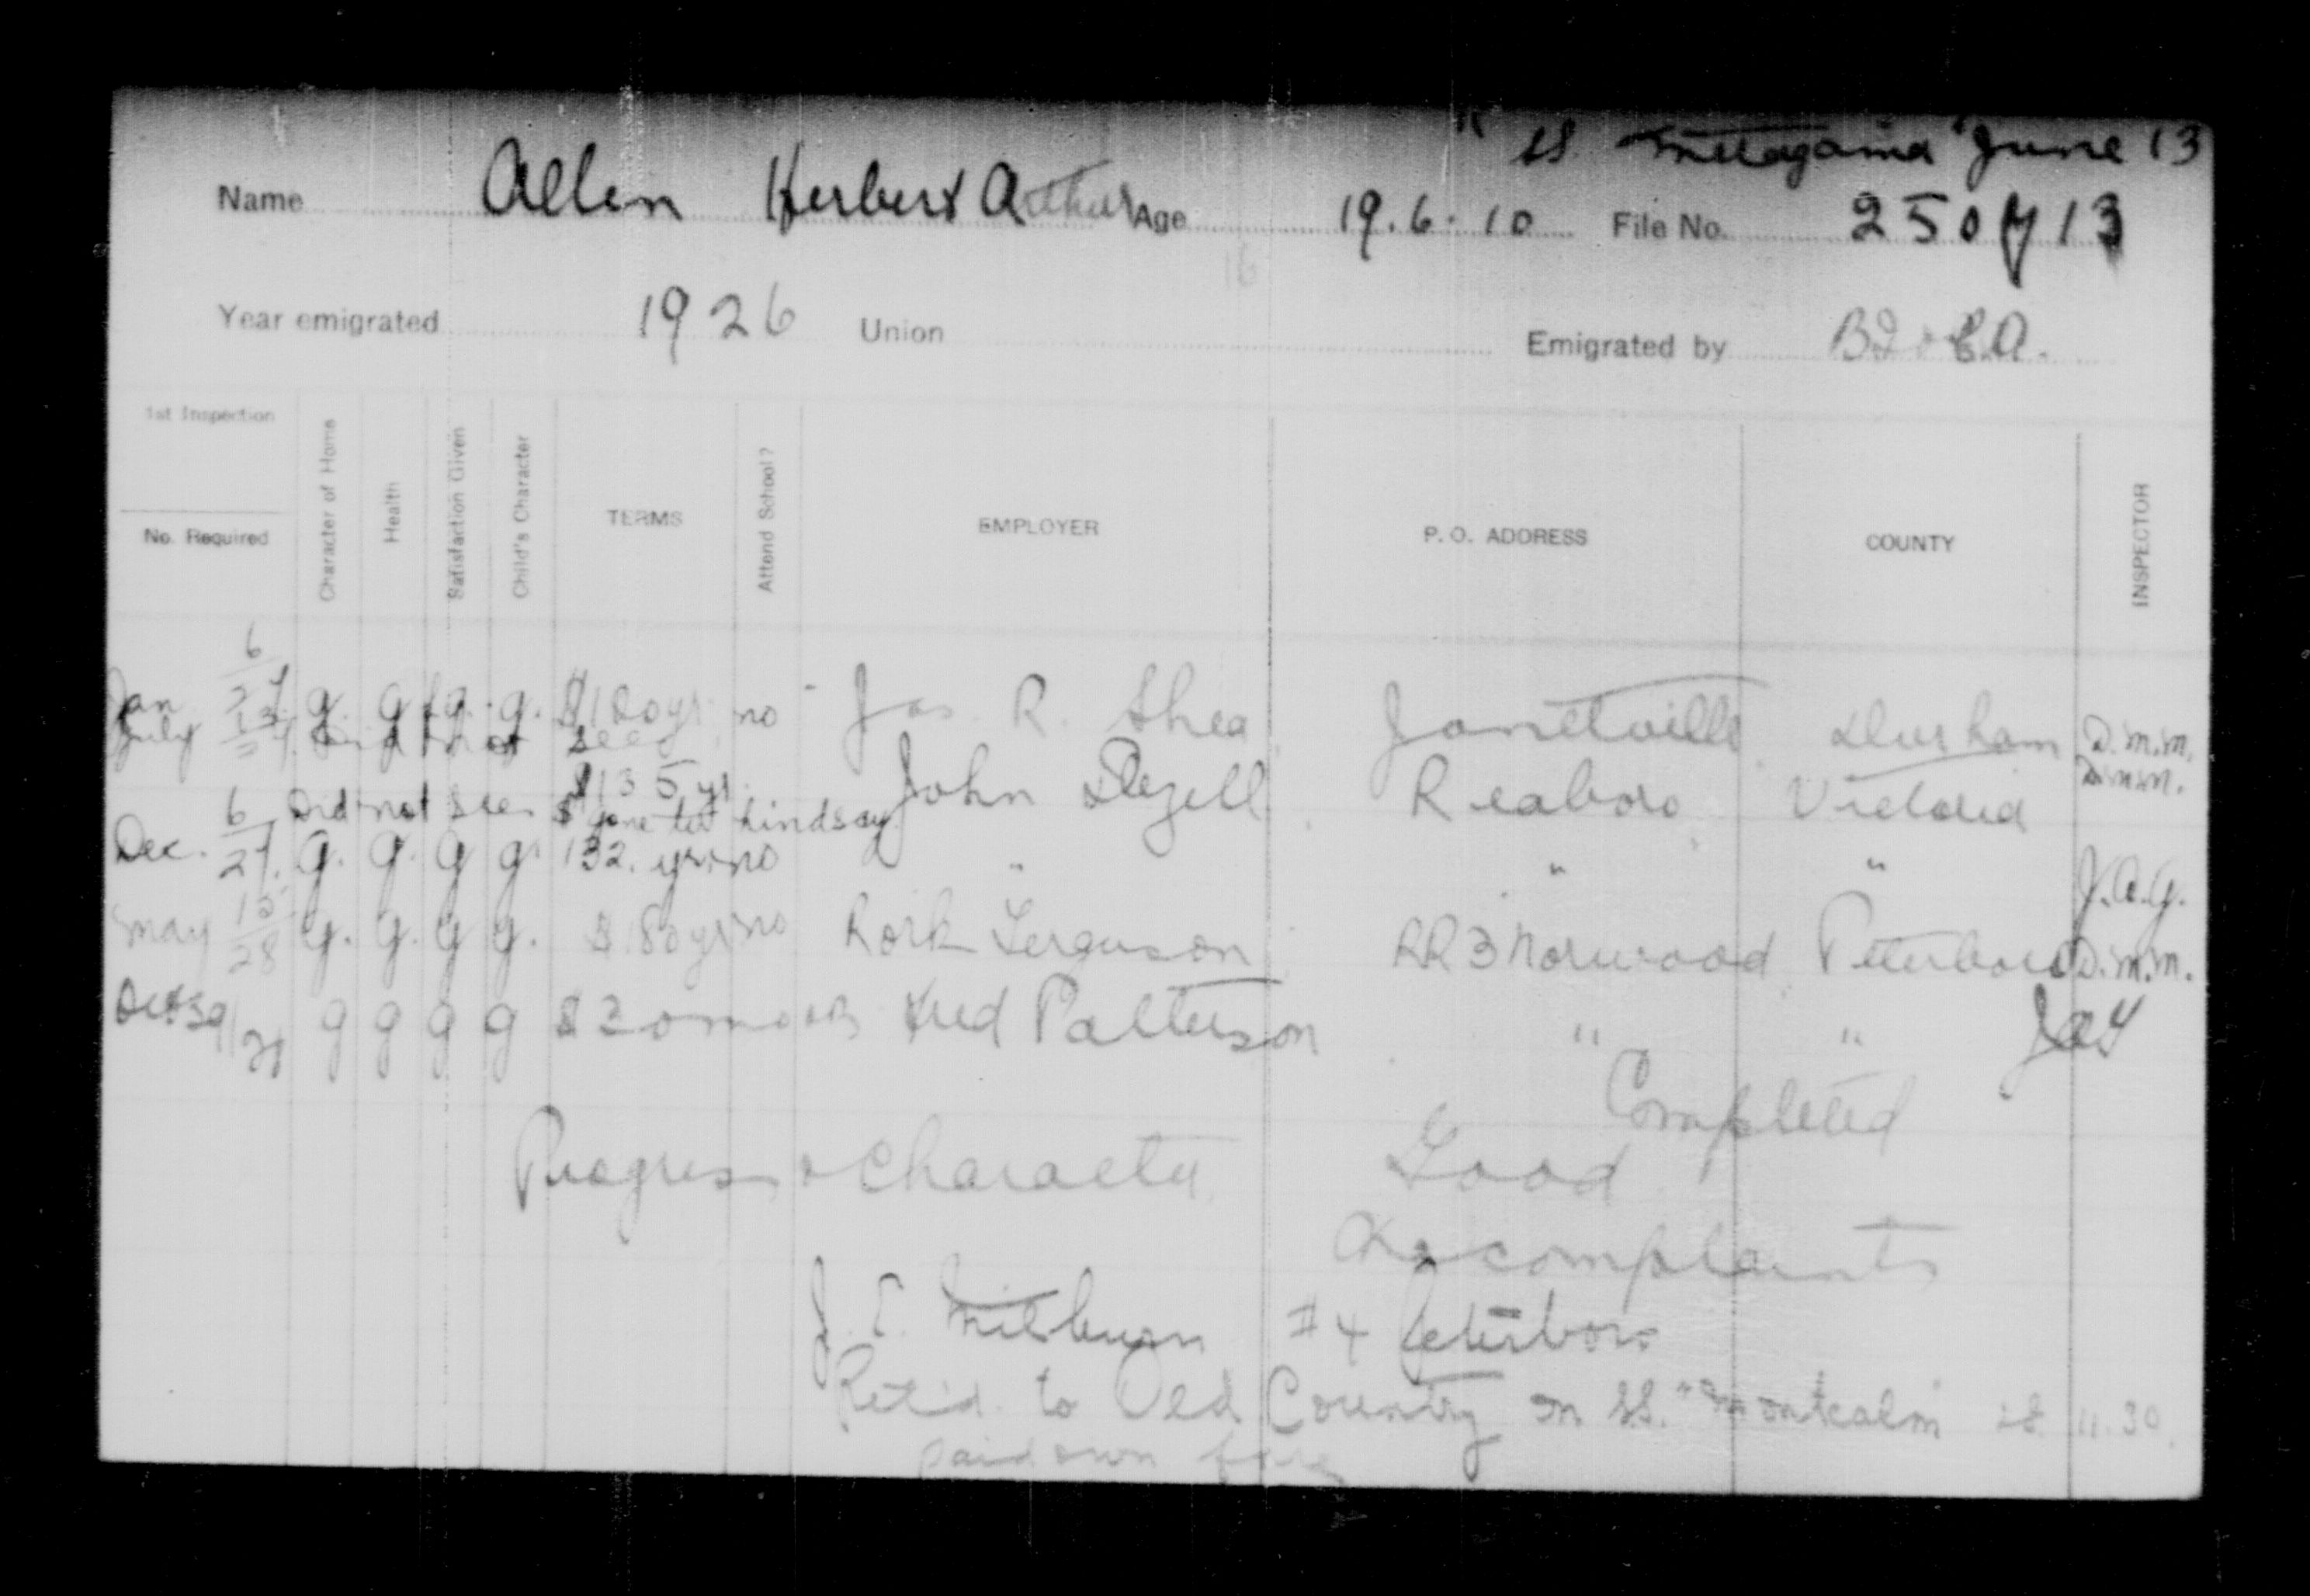 SS. Metagama June 13
Name Allen Herbert Arthur Age 19.6.10 File No. 250713
16
Year emigrated 1926 Union Emigrated by
1st Inspection
No. Required
Character of Home
Health
Satisfaction Given
Child's Character
TERMS
Attend School?
EMPLOYER
P. O. ADDRESS
COUNTY
INSPECTOR
Jan 6/27 g. g fg. g. $120 yr. no Jas. R. Shea Janetville Durham D.M.M.
July 13/27 Did not see D.M.M.
$135 yr. John Dezell Reaboro Victoria
Did not see gone to Lindsay
Dec. 6/27. g. g. g g. 132. yr. no " " " J.A.G.
May 15/28 g. g. g g. $180 yr no Rork Ferguson RR3 Norwood Peterboro D.M.M.
g g g g $20 mo Fred Patterson " "
Completed
Progress & Character Good
No complaints
J. E. Milburn #4 Peterboro
Ret'd. to Old Country on SS. "Montcalm" 28.11.30.
paid own fare